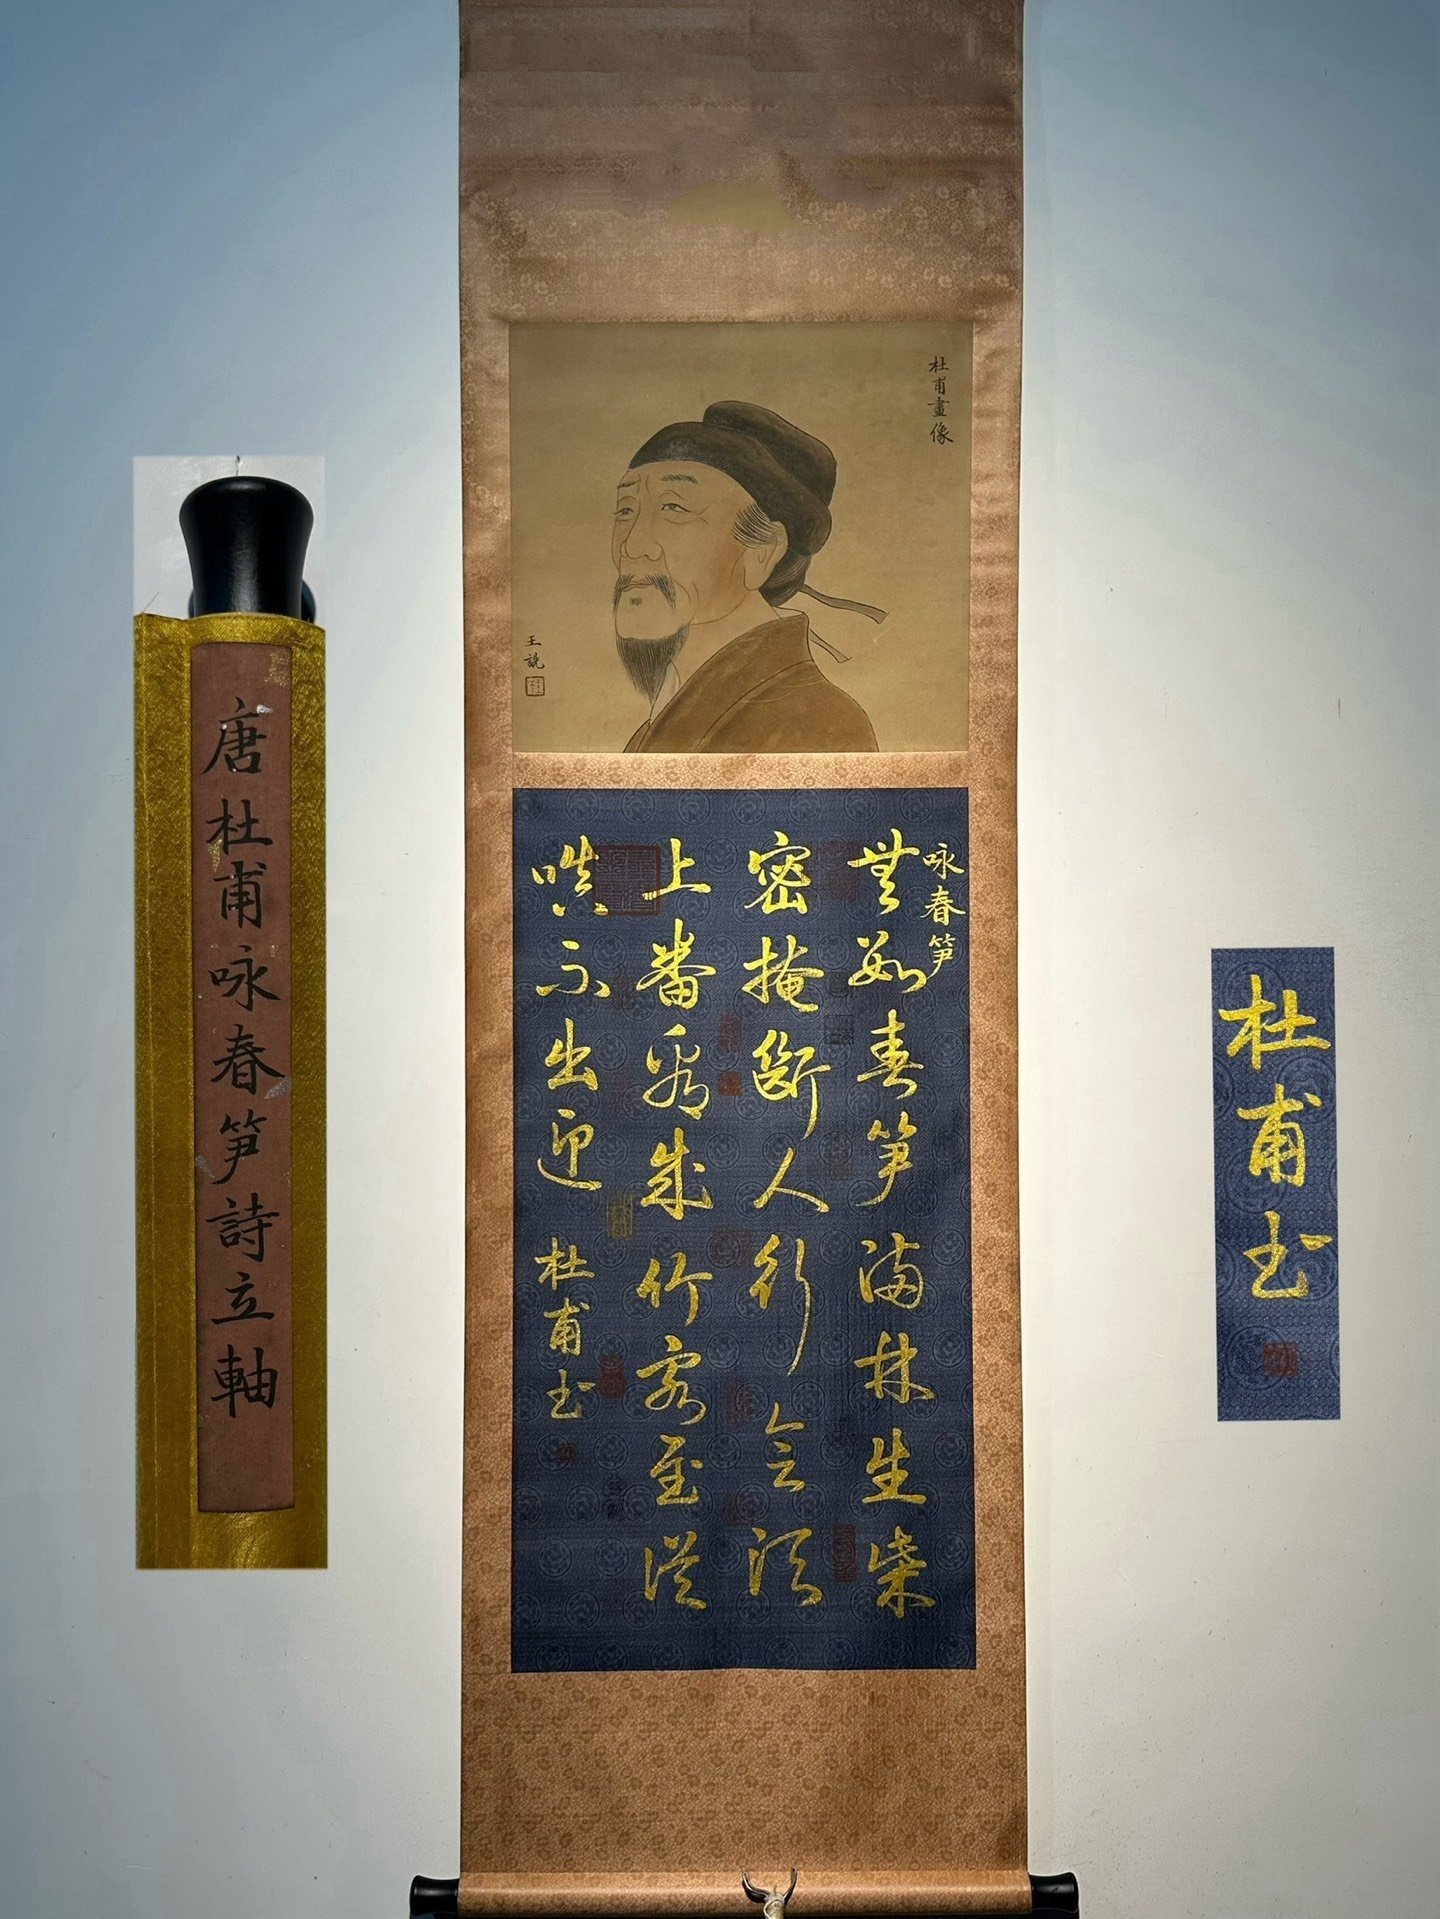 杜甫畫像
王詵
咏春笋
無數春笋滿林生柴
密掩斷人行會須
上番看成竹客至從
嗔不出迎
杜甫書
唐杜甫咏春笋詩立軸
杜甫書